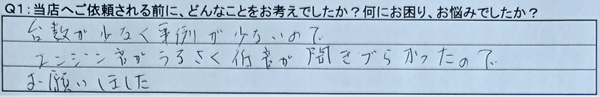 Q1：当店へご依頼される前に、どんなことをお考えでしたか？何にお困り、お悩みでしたか？
台数が少なく事例が少ないので
エンジン音がうるさく低音が聞きづらかったので
お願いしました